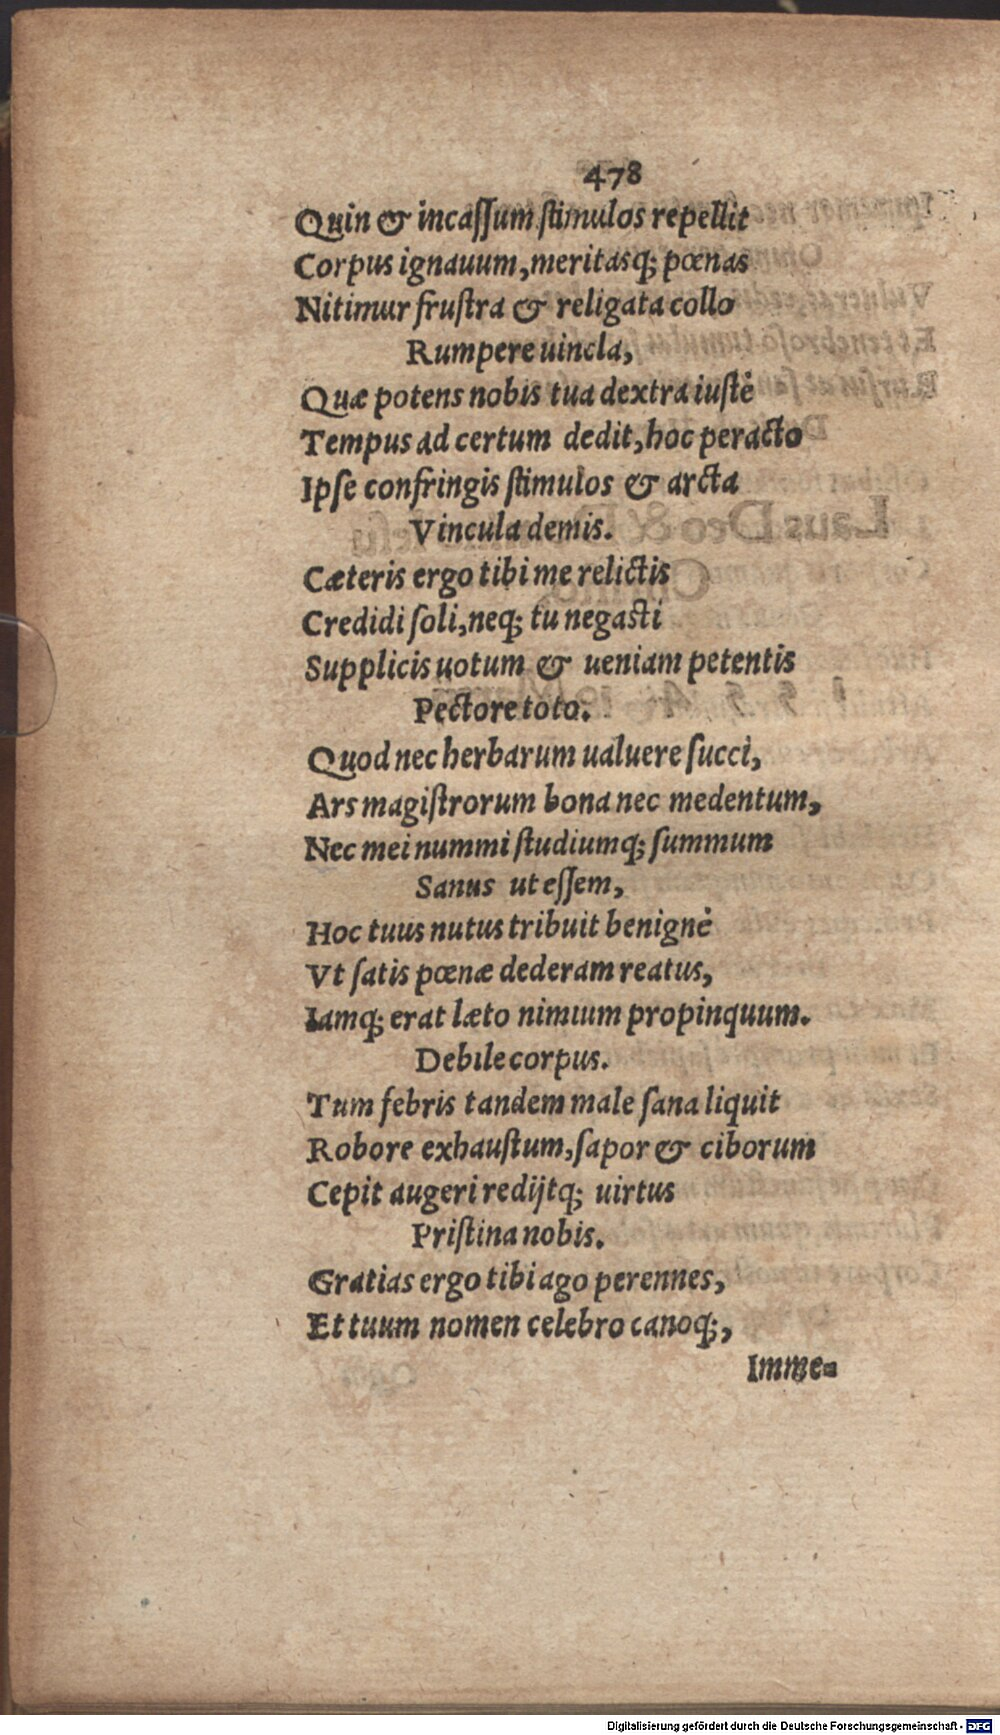 478
Quin & incaſſum ſtimulos repellit
Corpus ignauum, meritasq; pœnas
Nitimur fruſtra & religata collo
Rumpere uincla,
Quæ potens nobis tua dextra iuſtè
Tempus ad certum dedit, hoc peracto
Ipſe confringis ſtimulos & arcta
Vincula demis.
Cæteris ergo tibi me relictis
Credidi ſoli, neq; tu negaſti
Supplicis uotum & ueniam petentis
Pectore toto.
Quod nec herbarum ualuere ſucci,
Ars magiſtrorum bona nec medentum,
Nec mei nummi ſtudiumq; ſummum
Sanus ut eſſem,
Hoc tuus nutus tribuit benignè
Vt ſatis pœnæ dederam reatus,
Iamq; erat læto nimium propinquum.
Debile corpus.
Tum febris tandem male ſana liquit
Robore exhauſtum, ſapor & ciborum
Cepit augeri redijtq; uirtus
Priſtina nobis.
Gratias ergo tibi ago perennes,
Et tuum nomen celebro canoq;,
Imme-
Digitalisierung gefördert durch die Deutsche Forschungsgemeinschaft - DFG